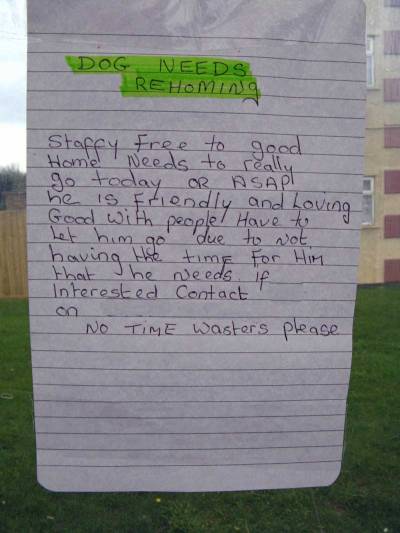 DOG NEEDS
REHOMING
Staffy Free to good
Home Needs to really
go today OR ASAP
he is Friendly and Loving
Good with people Have to
let him go due to Not
having the time For Him
that he Needs if
Interested Contact
on
No TIME Wasters please